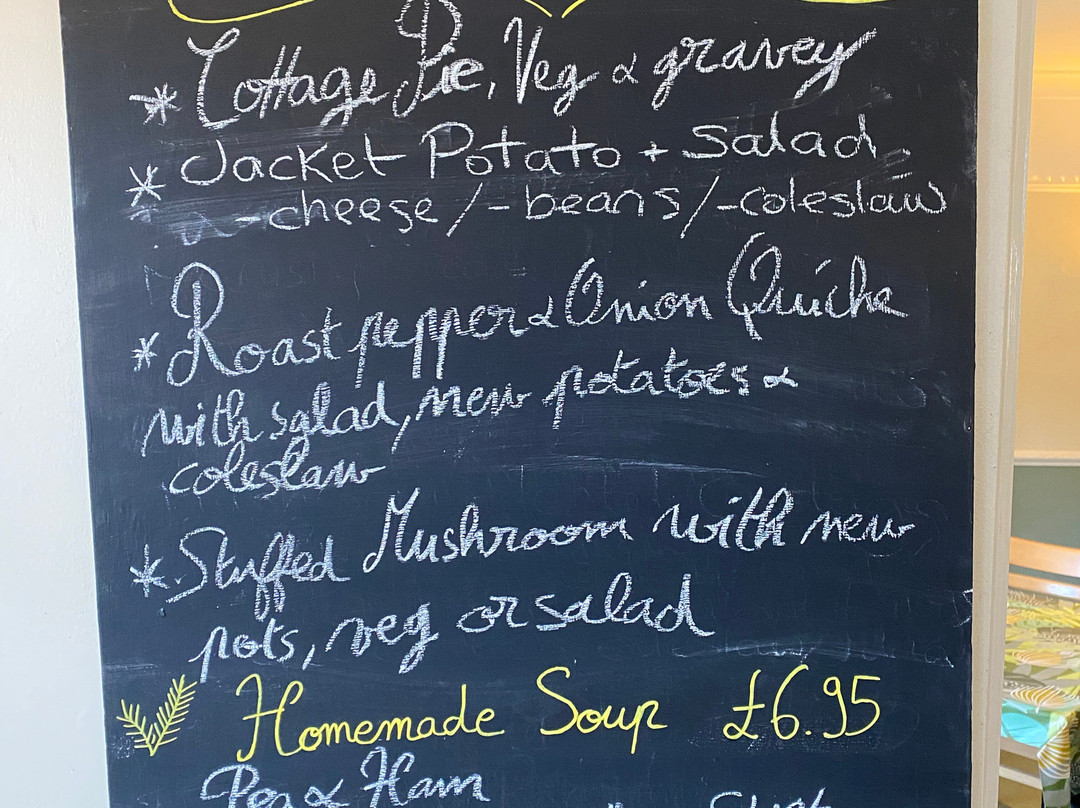 * Cottage Pie, Veg & gravey
* Jacket Potato + Salad.
- cheese / - beans / - coleslaw
* Roast pepper & Onion Quiche
with salad, new potatoes &
coleslaw
* Stuffed Mushroom with new
pots, veg or salad
Homemade Soup £6.95
Pea & Ham